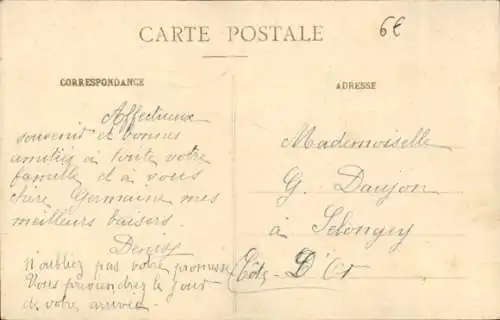 CARTE POSTALE
6€
CORRESPONDANCE
ADRESSE
Affectueux
souvenir et bonnes
amitiés à toute votre
famille et à vous
chère Germaine mes
meilleurs baisers.
Denise
n'oubliez pas votre promesse
Vous préviendrez le jour
de votre arrivée
Mademoiselle
G. Daujon
à Selongey
(Côte D'Or